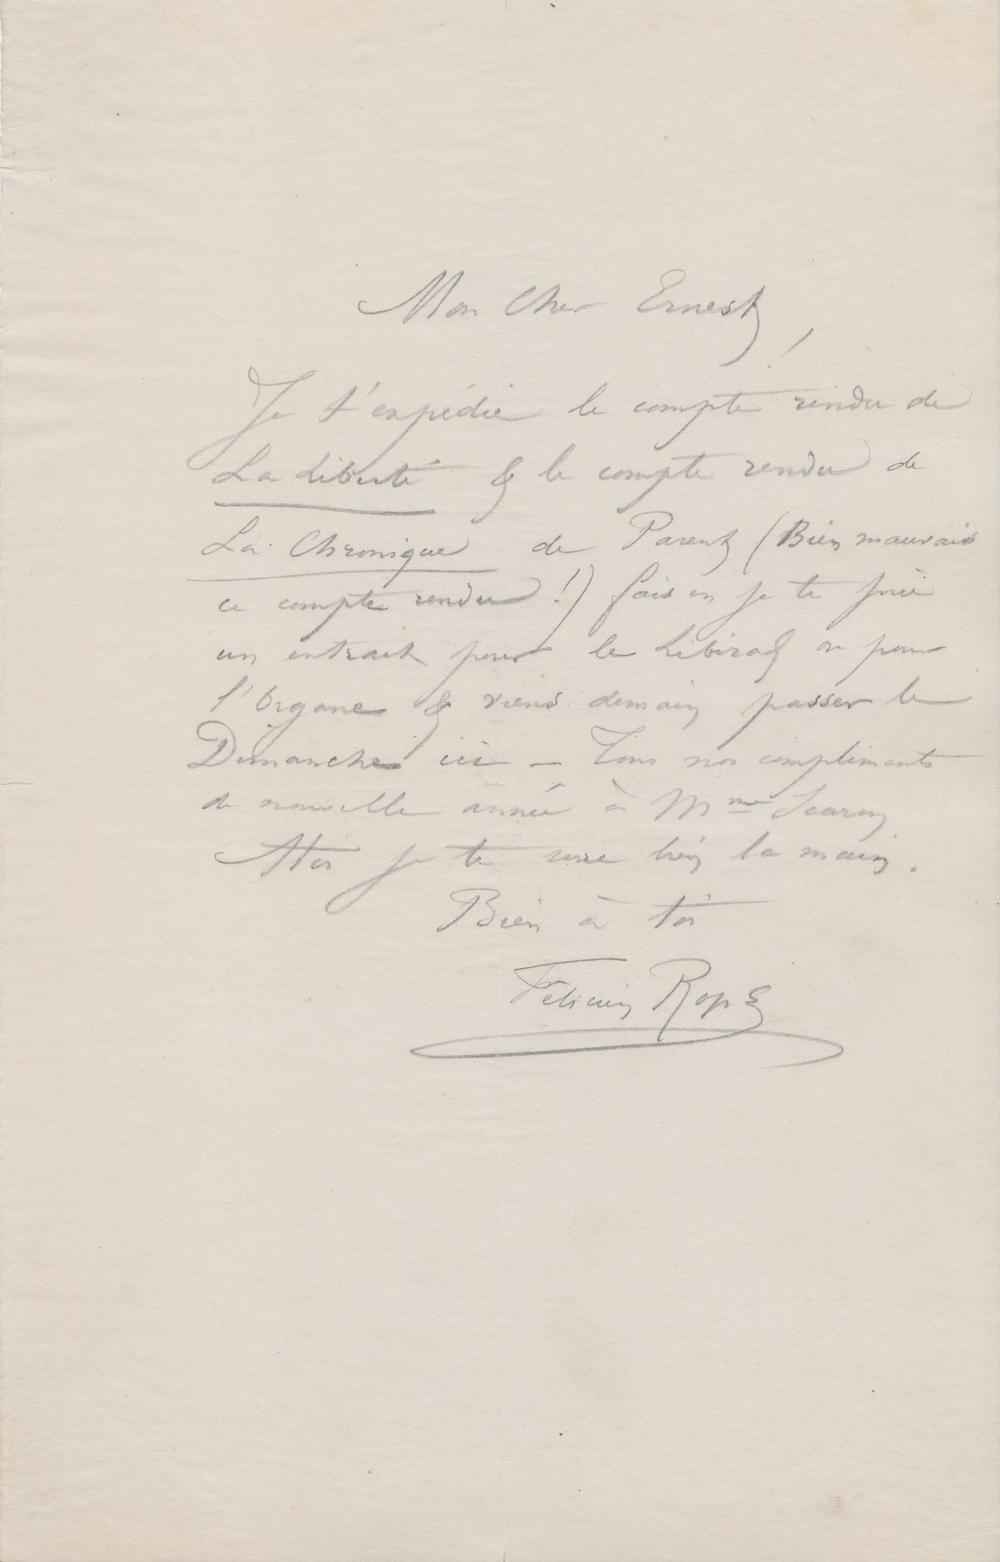 Mon Cher Ernest!
Je t'expédie le compte rendu de
La Liberté & le compte rendu de
La Chronique de Parent (Bien mauvais
ce compte rendu !) fais en je te prie
un extrait pour le Libéral ou pour
l'Organe & viens demain passer le
Dimanche ici – Tous nos compliments
de nouvelle année à Mme
A toi je te serre bien la main.
Bien à toi
Félicien Rops